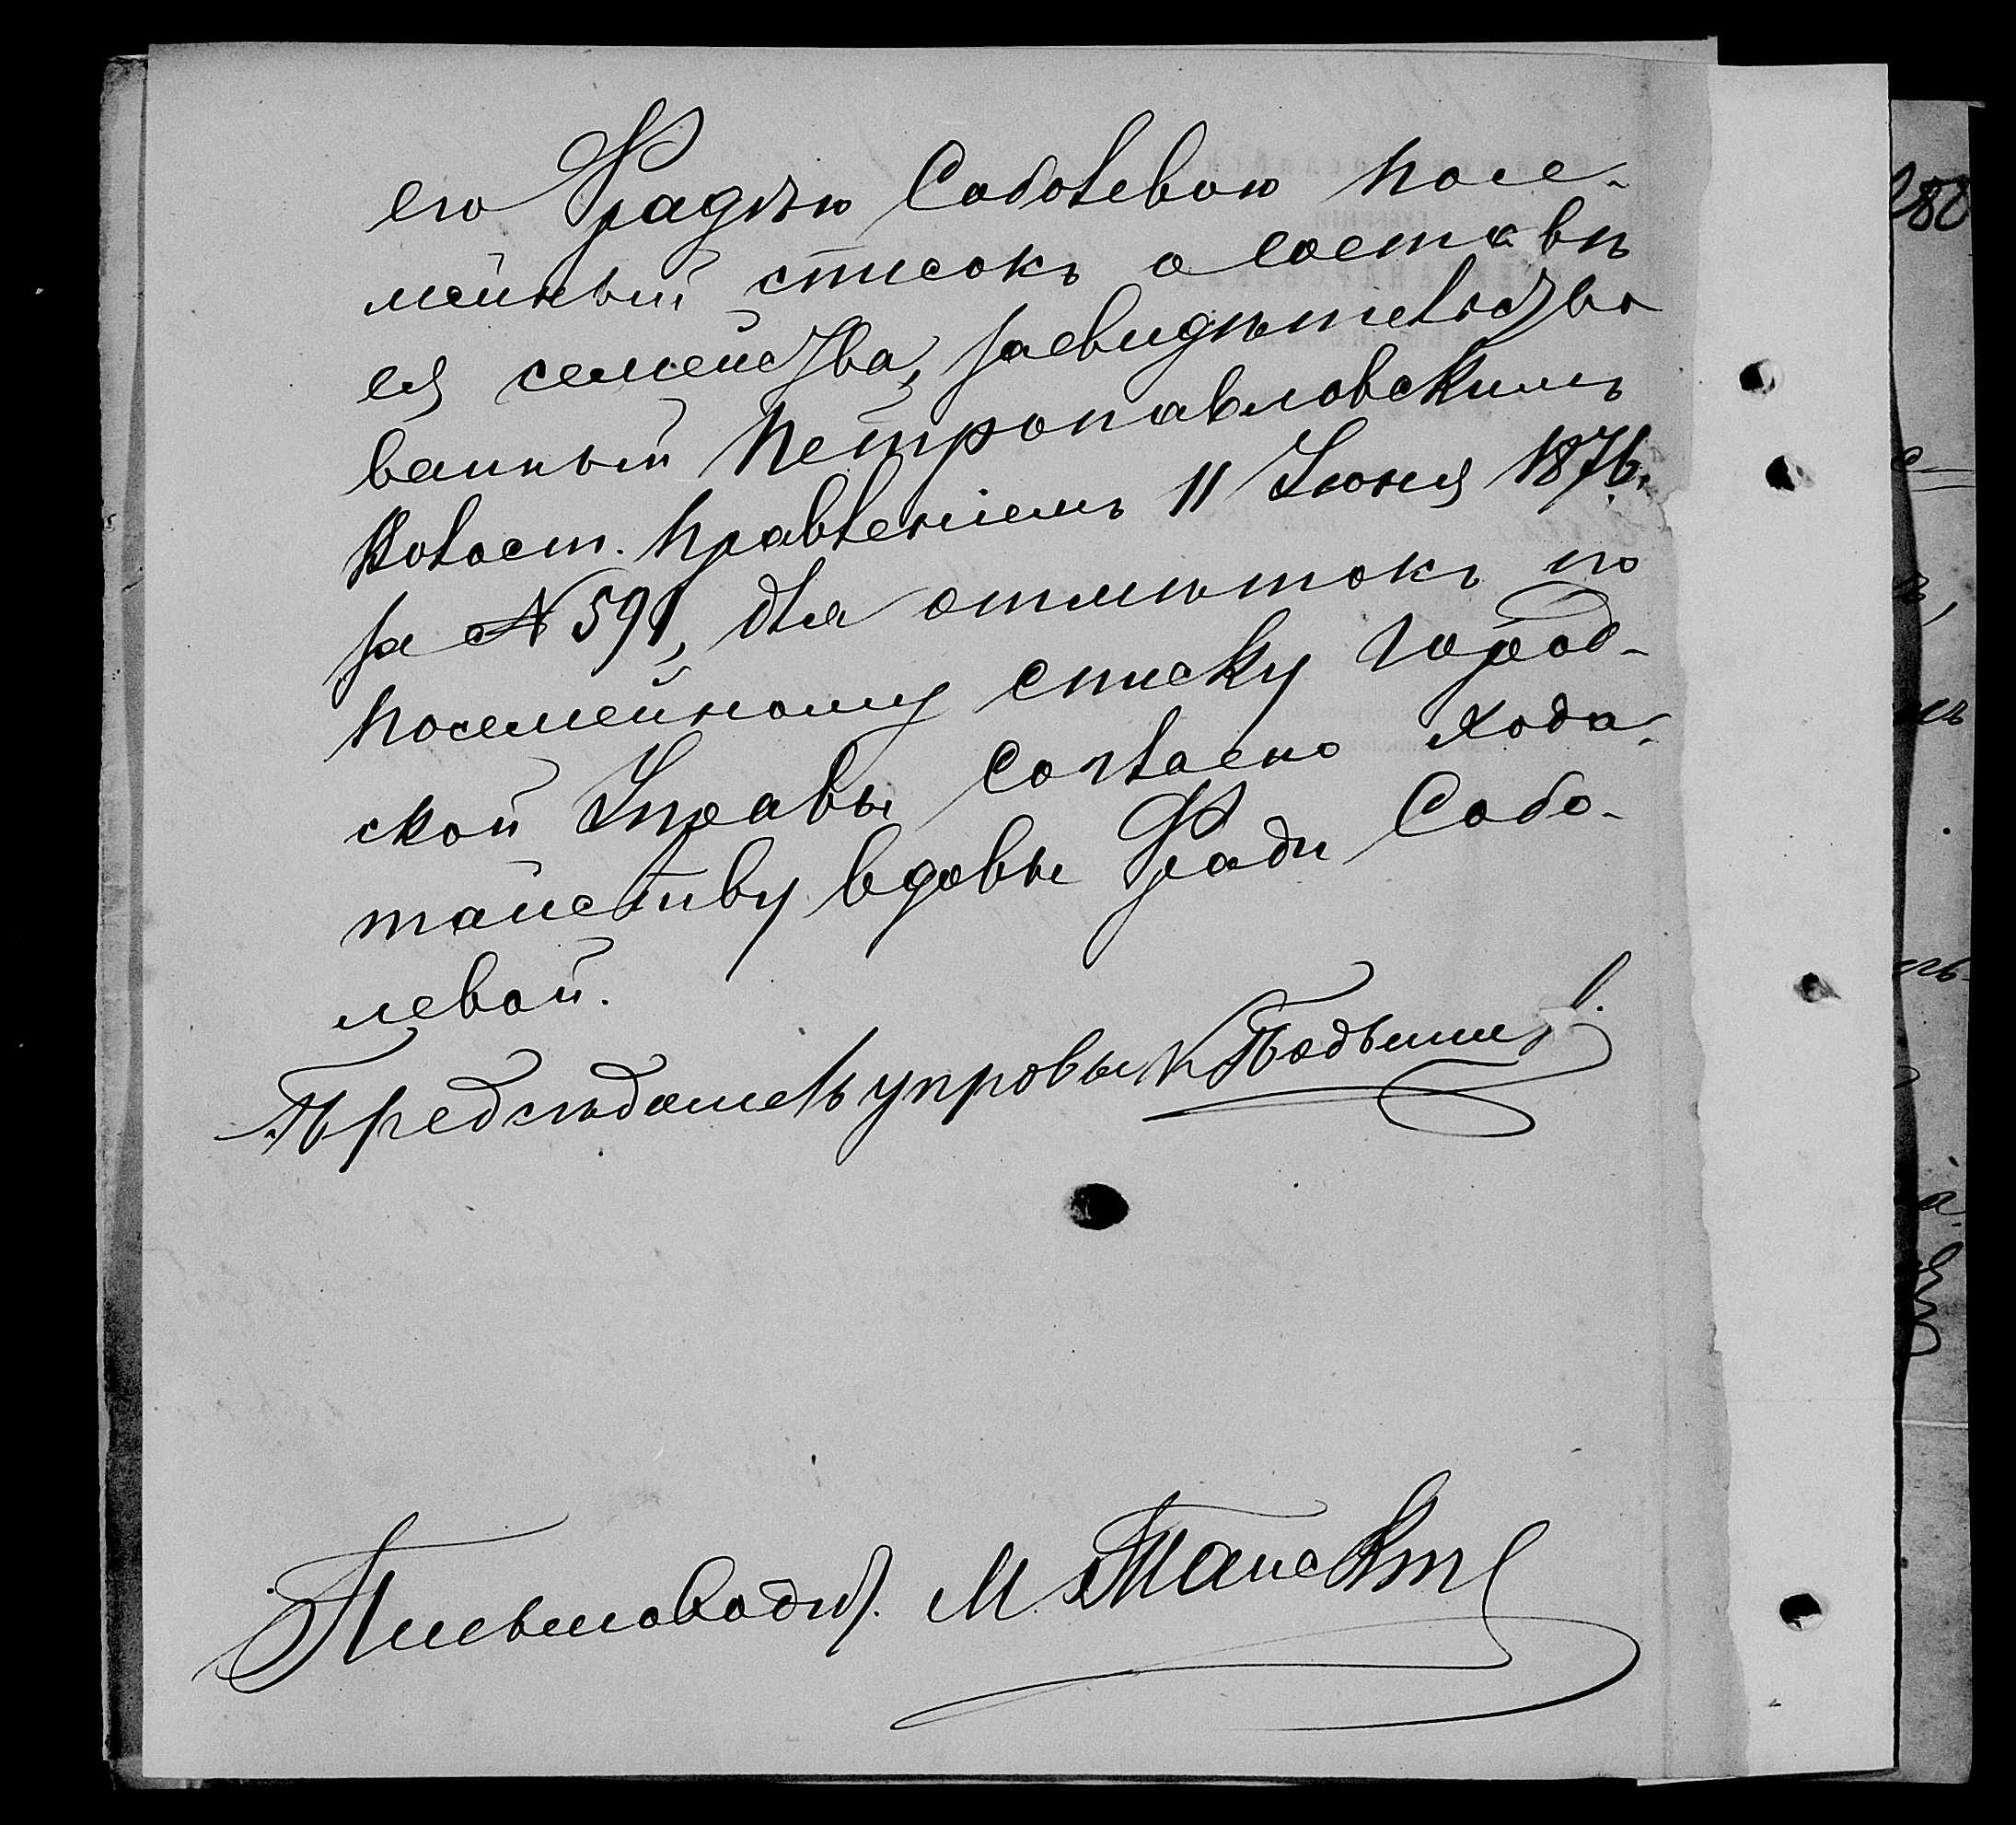 ею Фрадѣю Соболевою посе-
мейный списокъ о составѣ
ея семейства, засвидѣтельство
ванный Петропавловскимъ
Волост. Правленіемъ 11 Іюня 1876.
за № 591, для отмѣтокъ по
посемейному списку Город-
ской Управы согласно хода-
тайству вдовы Фради Собо-
левой.
Предсѣдатель управы
Письмоводит. М.
280